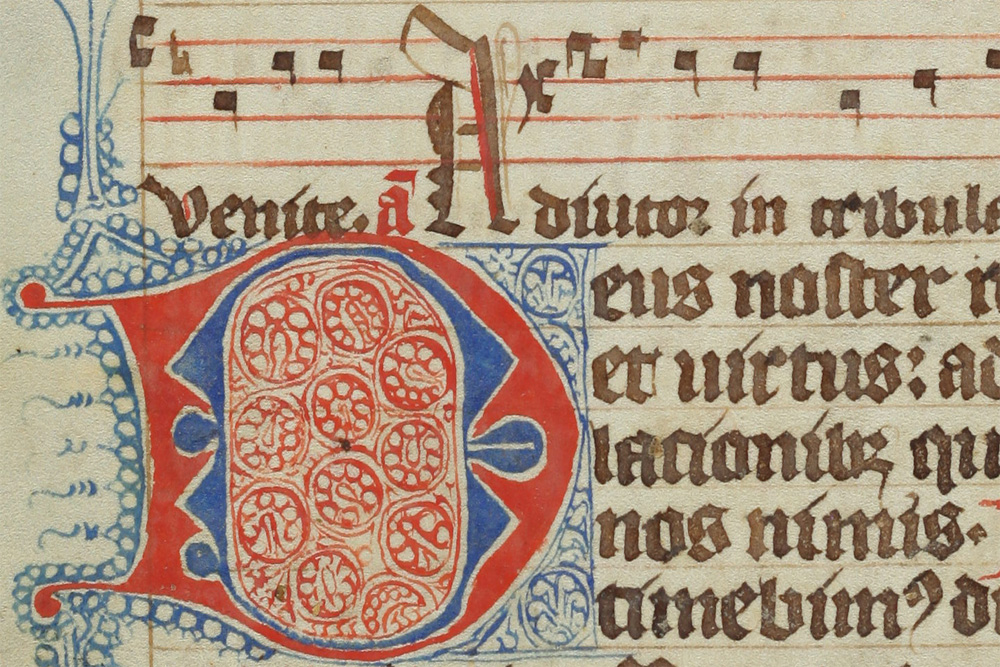 venite. a͞ Adiutor in tribula
Deus noster
et uirtus: ad
lacionibꝫ qu
nos nimis.
timebimꝰ do